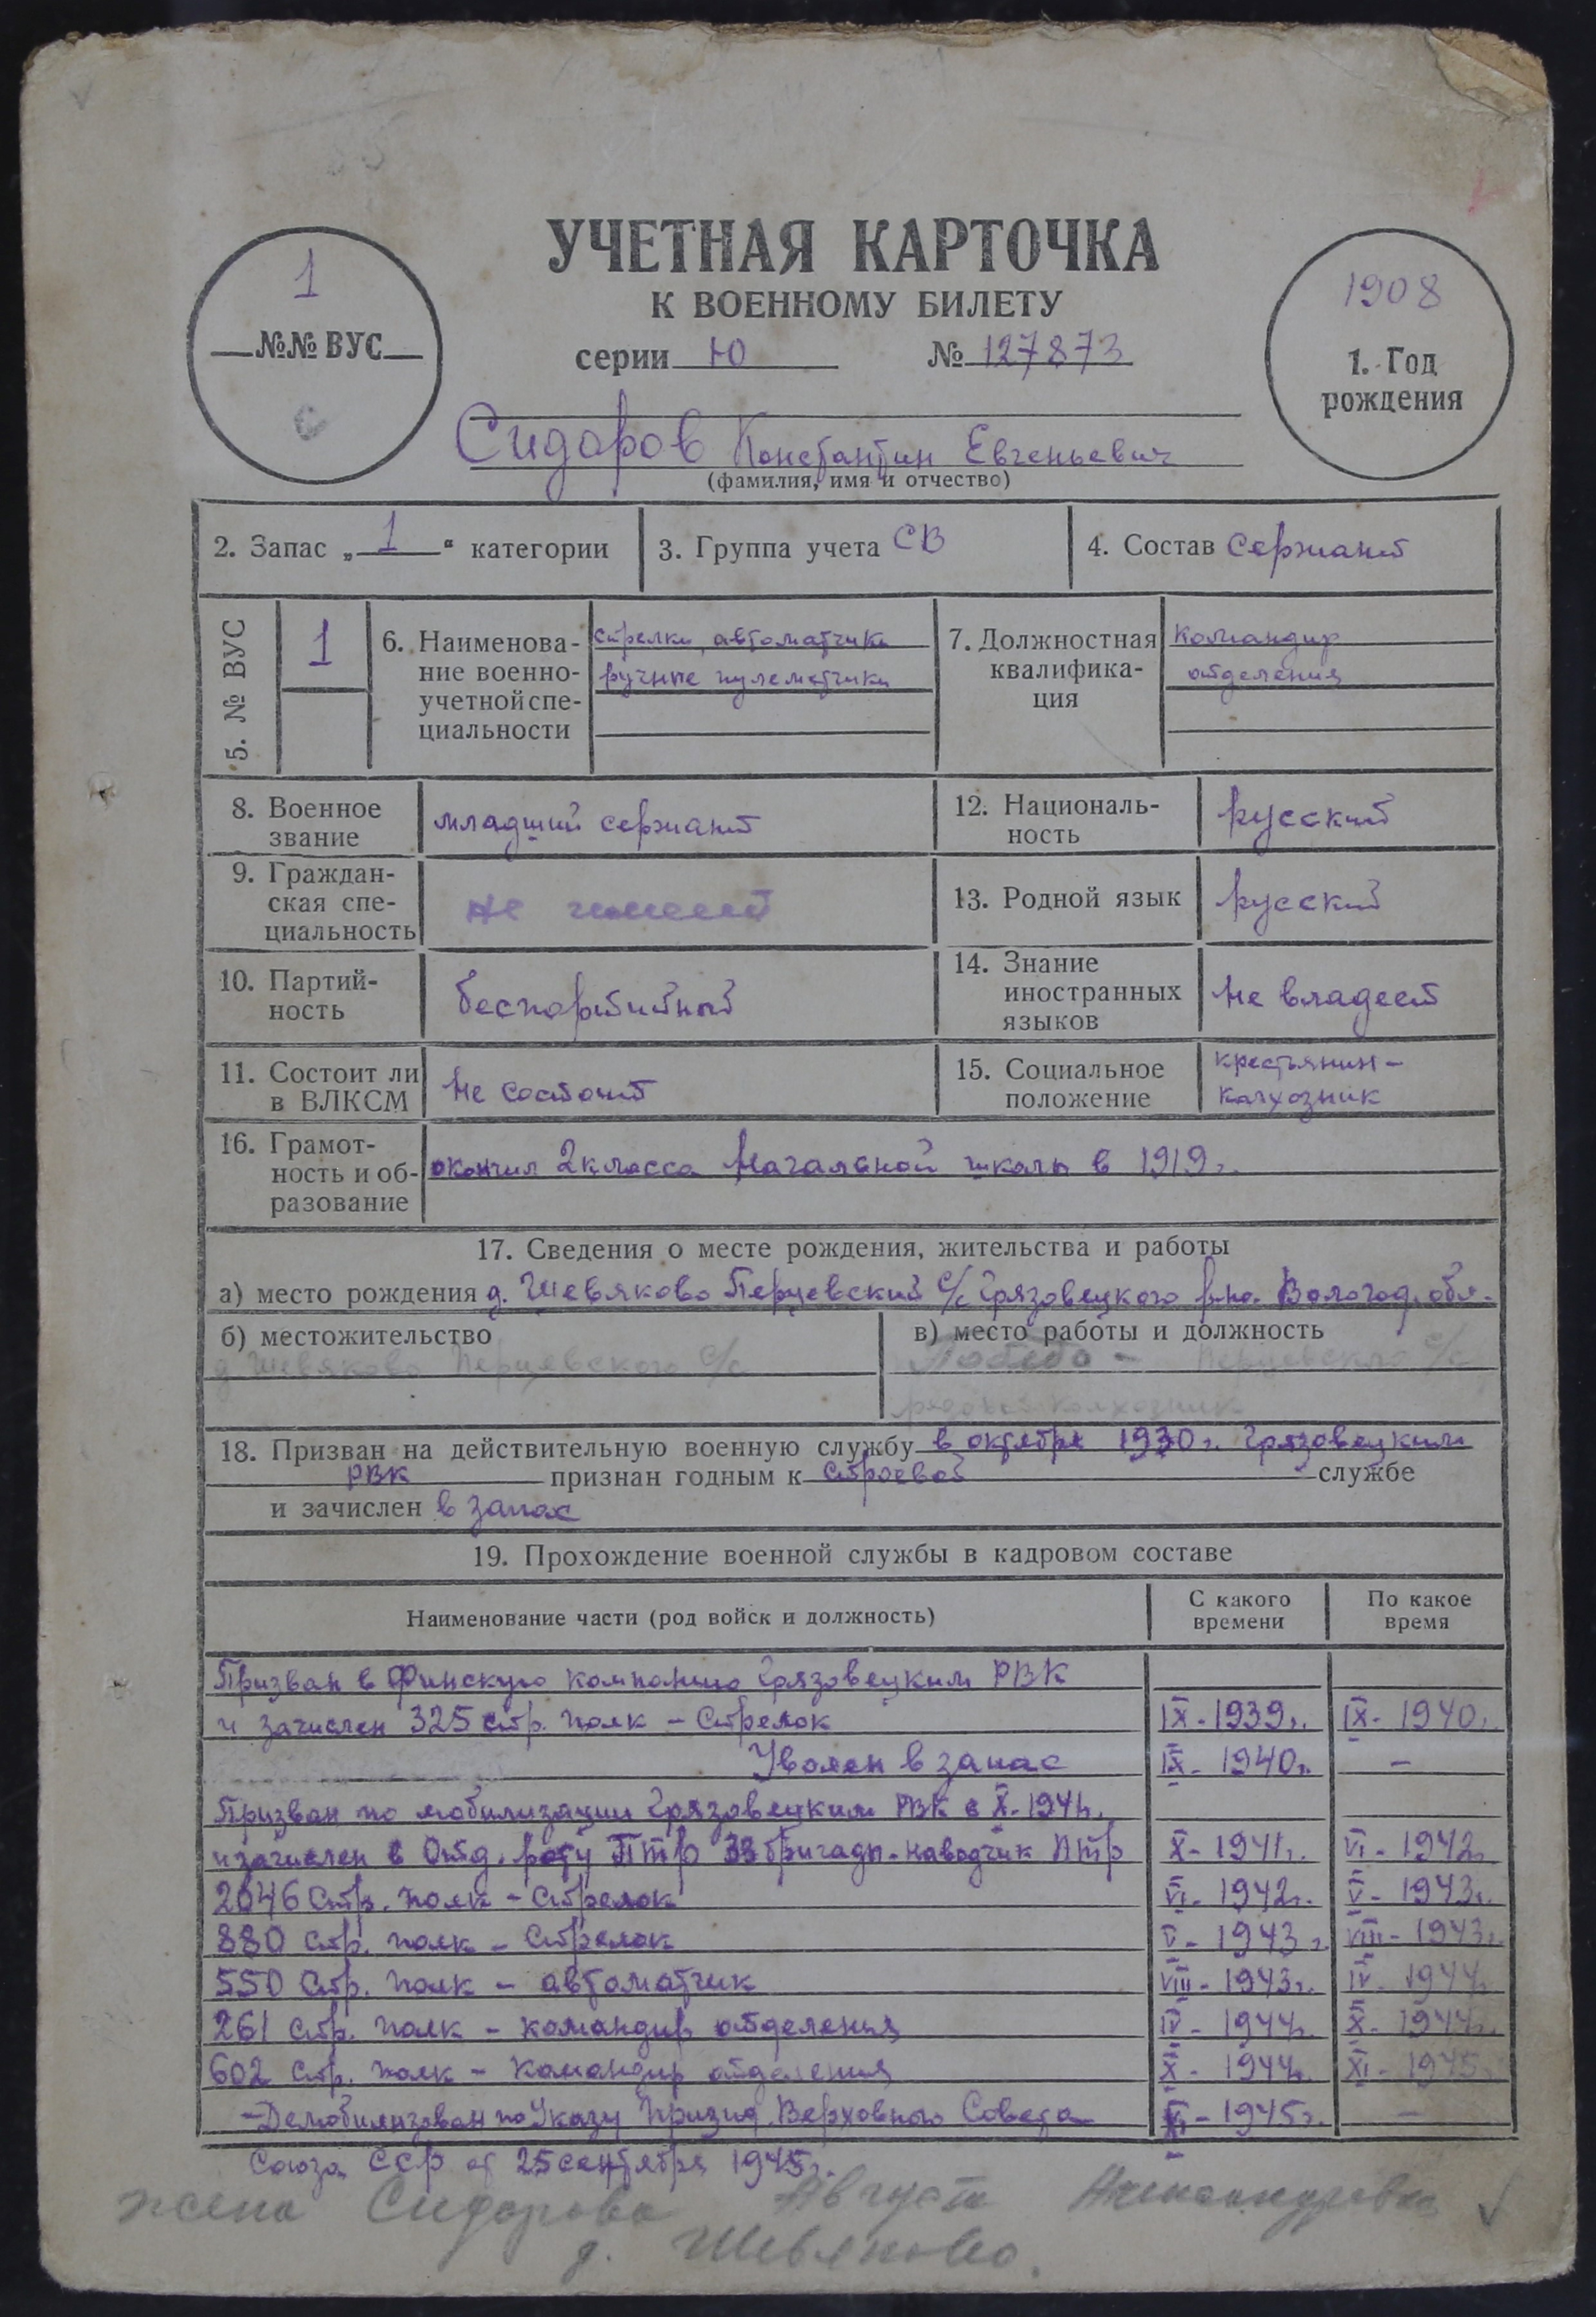 УЧЕТНАЯ КАРТОЧКА
К ВОЕННОМУ БИЛЕТУ
серии Ю № 127873
1
№№ ВУС
1908
1. Год
рождения
Сидоров Константин Евгеньевич
(фамилия, имя и отчество)
2. Запас „1“ категории
3. Группа учета СВ
4. Состав сержант
5. № ВУС
1
6. Наименова-
ние военно-
учетной спе-
циальности
стрелки, автоматчики
ручные пулеметчики
7. Должностная
квалифика-
ция
командир
отделения
8. Военное
звание
младший сержант
12. Националь-
ность
русский
9. Граждан-
ская спе-
циальность
не имеет
13. Родной язык
русский
10. Партий-
ность
беспартийный
14. Знание
иностранных
языков
не владеет
11. Состоит ли
в ВЛКСМ
не состоит
15. Социальное
положение
крестьянин-
калхозник
16. Грамот-
ность и об-
разование
окончил 2 класса начальной школы в 1919г.
17. Сведения о месте рождения, жительства и работы
а) место рождения д. Шевяково Перцевский с/с Грязовецкого р-на. Вологод. обл.
б) местожительство
д. Шевяково Перцевского с/с
в) место работы и должность
Перцевский с/с
рядовой колхозник
18. Призван на действительную военную службу в октябре 1930г. Грязовецким
РВК признан годным к строевой службе
и зачислен в запас
19. Прохождение военной службы в кадровом составе
Наименование части (род войск и должность)
С какого
времени
По какое
время
Призван в Финскую компанию Грязовецким РВК
и зачислен 325 стр. полк - Стрелок IX-1939г. IX-1940г.
Уволен в запас IX-1940г. -
Призван по мобилизации Грязовецким РВК в X-1941г.
и зачислен в Отд. роту ПТР 33 бригады - наводчик ПТР X-1941г. VI-1942г.
2046 Стр. полк - Стрелок VI-1942г. V-1943г.
880 Стр. полк - Стрелок V-1943г. VIII-1943г.
550 Стр. полк - автоматчик VIII-1943г. IV-1944г.
261 Стр. полк - командир отделения IV-1944г. X-1944г.
602 Стр. полк - командир отделения X-1944г. XI-1945г.
-Демобилизован по Указу Презид. Верховного Совета XI-1945г. -
Союза ССР от 25 сентября 1945г.
жена Сидорова Августа Александровна
д. Шевяково.